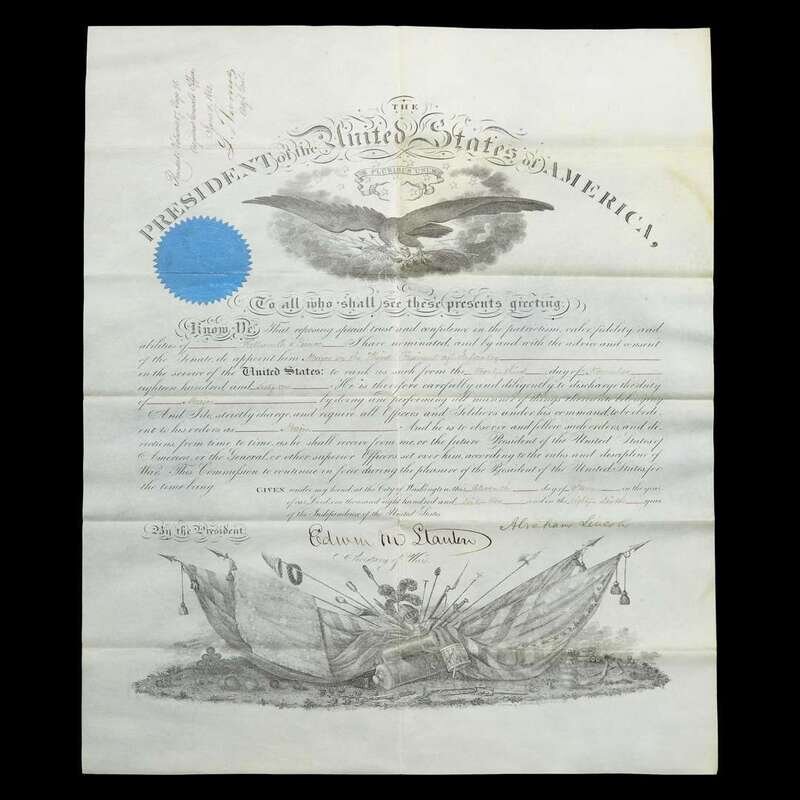 Adjutant General's Office
L. Thomas
Adjt. Genl.
THE
PRESIDENT of the United States of AMERICA,
E PLURIBUS UNUM
To all who shall see these presents greeting:
Know Ye, That reposing special trust and confidence in the patriotism, valor, fidelity, and
abilities of I have nominated, and by and with the advice and consent
of the Senate, do appoint him Major in the Regiment of Infantry
in the service of the United States: to rank as such from the day of November
eighteen hundred and sixty one He is therefore carefully and diligently to discharge the duty
of Major by doing and performing all manner of things thereunto belonging.
And I do strictly charge, and require all Officers and Soldiers under his command to be obedi-
ent to his orders as Major And he is to observe and follow such orders, and di-
rections, from time to time, as he shall receive from me, or the future President of the United States of
America, or the General, or other superior Officers set over him, according to the rules and discipline of
War. This Commission to continue in force during the pleasure of the President of the United States for
the time being.
GIVEN under my hand at the City of Washington this day of in the year
of our Lord one thousand eight hundred and sixty two and in the eighty sixth year
of the Independence of the United States.
By the President
Abraham Lincoln
Edwin M Stanton
Secretary of War.